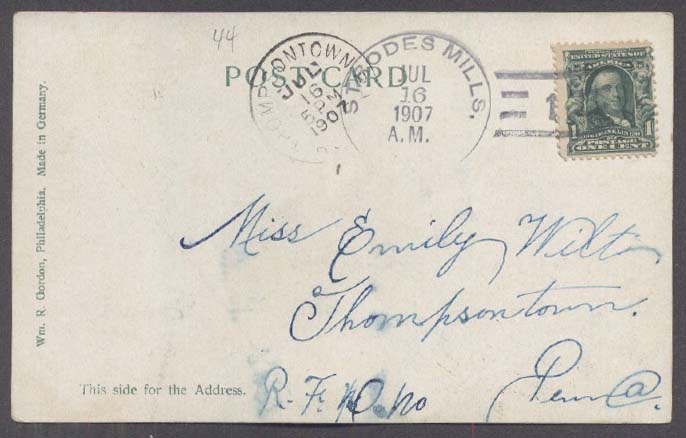 44
POST CARD
THOMPSONTOWN
JUL
16
5 PM
1907
STRODES MILLS.
JUL
16
1907
A.M.
UNITED STATES OF
AMERICA
POSTAGE
1 ONE CENT 1
Wm. R. Gordon, Philadelphia. Made in Germany.
Miss Emily Wilt
Thompsontown.
R. F. D. No Penna.
This side for the Address.